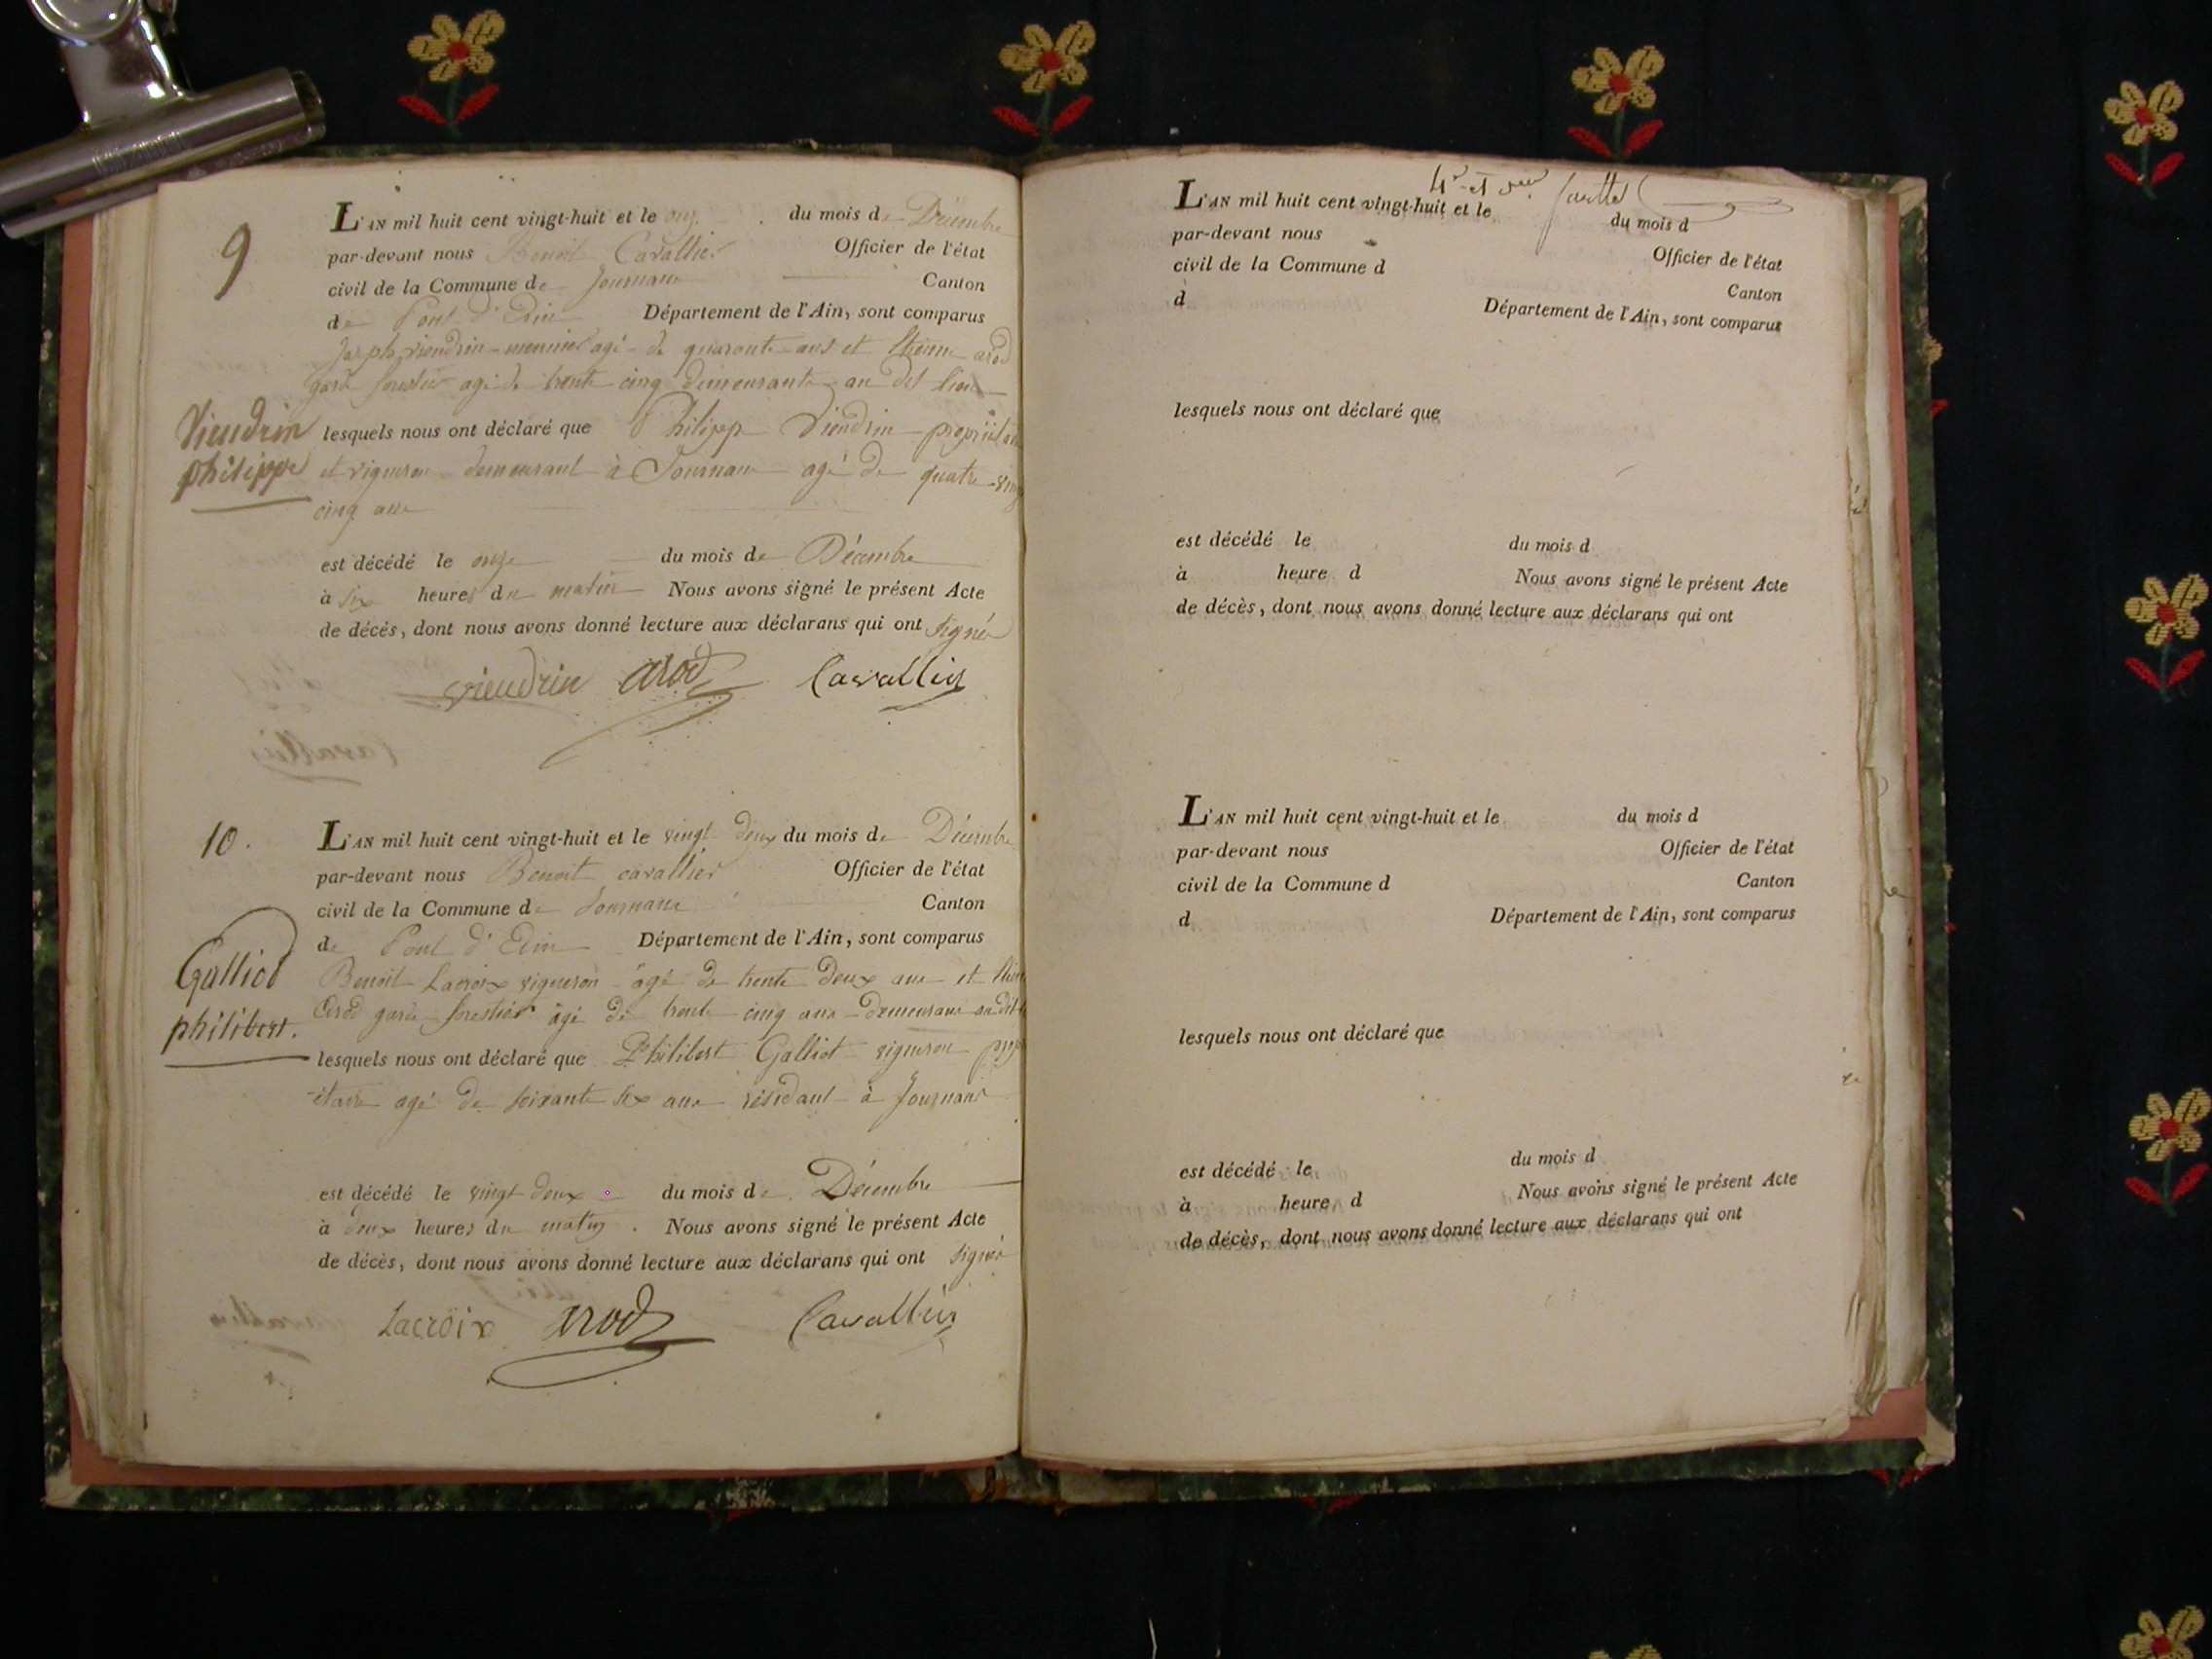 9
L'AN mil huit cent vingt-huit et le onze du mois de Décembre
par-devant nous Benoit Cavallier Officier de l'état
civil de la Commune de Journans Canton
de Pont d'Ain Département de l'Ain, sont comparus
Joseph viendrin meunier agé de quarante ans et Etienne arod
garde forestier agé de trente cinq demeurants au dit lieu
Viendrin
philippe
lesquels nous ont déclaré que Philippe Viendrin propriétaire
et vigneron demeurant à Journans agé de quatre-vingt
cinq ans
est décédé le onze du mois de Décembre
à six heures du matin Nous avons signé le présent Acte
de décés, dont nous avons donné lecture aux déclarans qui ont signés
viendrin arod Cavallier
10.
L'AN mil huit cent vingt-huit et le vingt deux du mois de Décembre
par-devant nous Benoit cavallier Officier de l'état
civil de la Commune de Journans Canton
de Pont d'Ain Département de l'Ain, sont comparus
Galliod
philibert.
Benoit Lacroix vigneron âgé de trente deux ans et
Arod garde forestier âgé de trente cinq ans demeurans au dit
lesquels nous ont déclaré que Philibert Galliot vigneron propri
étaire agé de soixante six ans résidant à Journans
est décédé le vingt deux du mois de Décembre
à deux heures du matin. Nous avons signé le présent Acte
de décès, dont nous avons donné lecture aux déclarans qui ont signés
Lacroix arod Cavallier
4e et
L'AN mil huit cent vingt-huit et le du mois d
par-devant nous Officier de l'état
civil de la Commune d Canton
d Département de l'Ain, sont comparus
lesquels nous ont déclaré que
est décédé le du mois d
à heure d Nous avons signé le présent Acte
de décès, dont nous avons donné lecture aux déclarans qui ont
L'AN mil huit cent vingt-huit et le du mois d
par-devant nous Officier de l'état
civil de la Commune d Canton
d Département de l'Ain, sont comparus
lesquels nous ont déclaré que
est décédé le du mois d
à heure d Nous avons signé le présent Acte
de décès, dont nous avons donné lecture aux déclarans qui ont